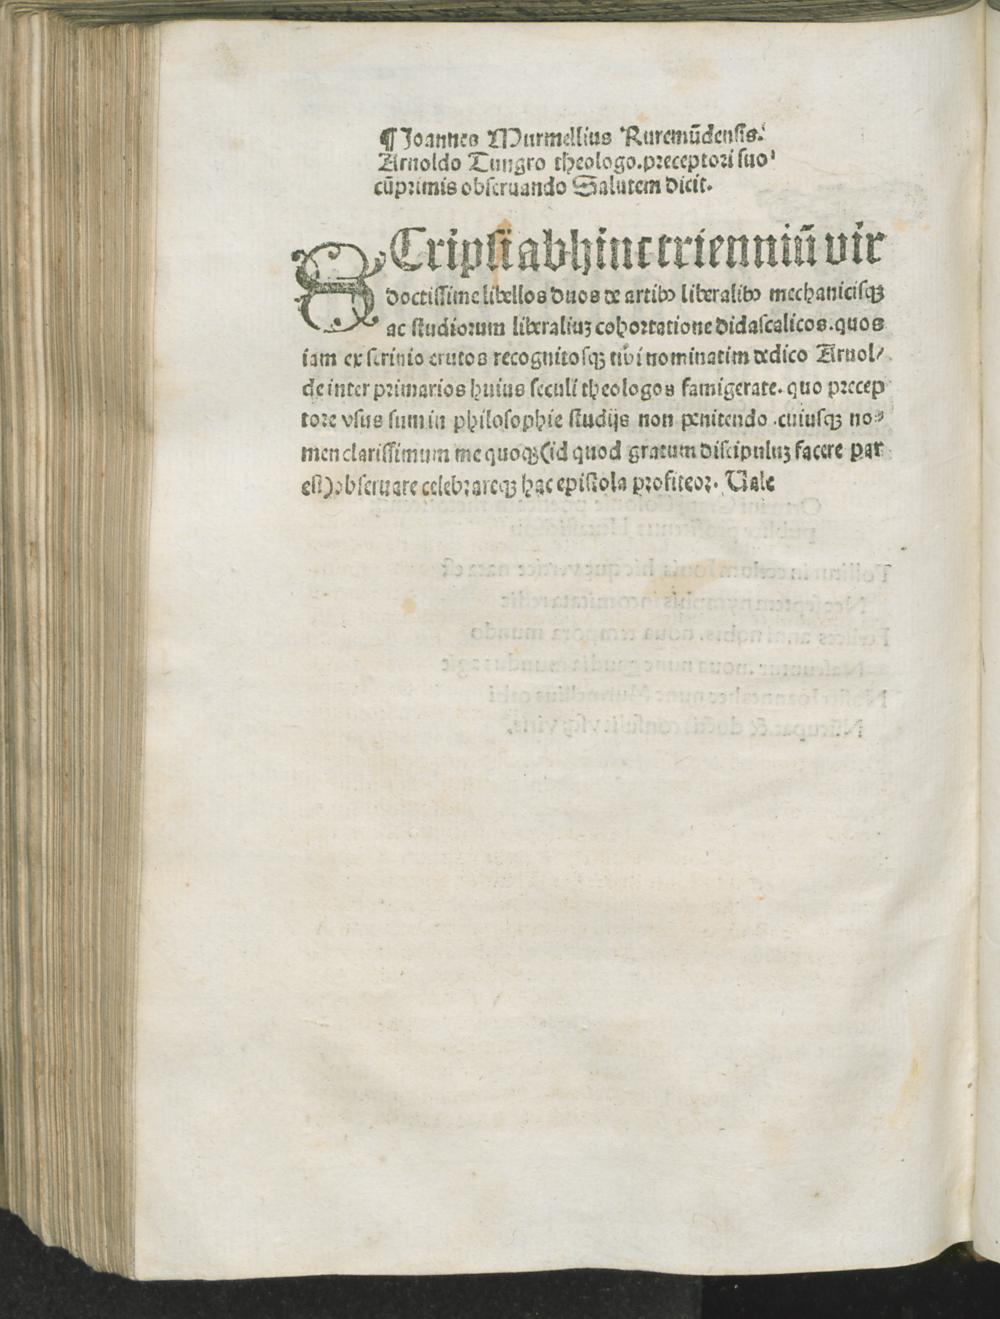 ¶ Joannes Murmellius Ruremūdensis.
Arnoldo Tungro theologo. preceptori suo
cūprimis obseruando Salutem dicit.
SCripsi abhinc trienniū vir
doctissime libellos duos de artibꝰ liberalibꝰ mechanicisqꝫ
ac studiorum liberaliuꝫ cohortatione didascalicos. quos
iam ex scrinio erutos recognitosqꝫ tibi nominatim dedico Arnol/
de inter primarios huius seculi theologos famigerate. quo precep
tore vsus sum in philosophie studijs non penitendo . cuiusqꝫ no⸗
men clarissimum me quoqꝫ (id quod gratum discipuluꝫ facere par
est) obseruare celebrareqꝫ hac epistola profiteor. Uale